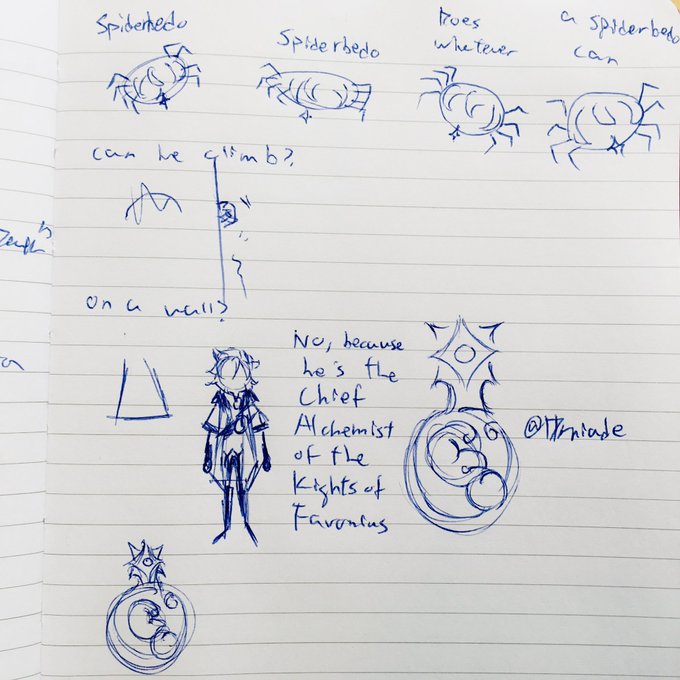 Spiderbedo
Spiderbedo
Does
whatever
a spiderbedo
can
can he climb?
on a wall?
No, because
he's the
Chief
Alchemist
of the
Kights of
Favonius